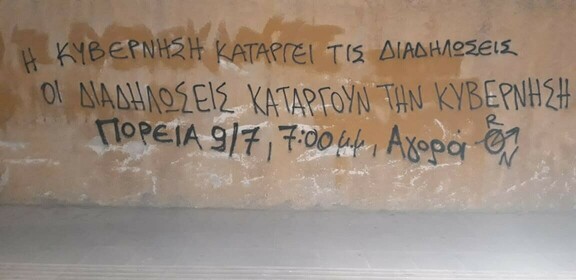 Η ΚΥΒΕΡΝΗΣΗ ΚΑΤΑΡΓΕΙ ΤΙΣ ΔΙΑΔΗΛΩΣΕΙΣ
ΟΙ ΔΙΑΔΗΛΩΣΕΙΣ ΚΑΤΑΡΓΟΥΝ ΤΗΝ ΚΥΒΕΡΝΗΣΗ
ΠΟΡΕΙΑ 9/7, 7:00 μ.μ., Αγορά R N